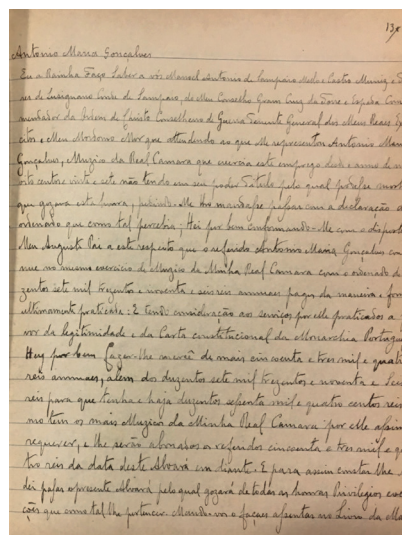 139
Antonio Maria Gonçalves
Eu a Rainha Faço Saber a vós Manoel Antonio de Sampaio Mello e Castro Muniz e
de Lusignano Conde de Sampaio, do Meu Conselho Gram Cruz da Torre e Espada Com
mendador da Ordem de Christo Conselheiro de Guerra Tenente General dos Meus Reaes Ex
citos e Meu Mordomo Mor que attendendo ao que Me representou Antonio Maria
Gonçalves, Muzico da Real Camara que exercia este emprego desde o anno de m
oito centos e vinte e sete não tendo em seu poder titulo pelo qual podesse mostr
que gozava esta honra, Me mandasse passar com a declaração d
ordenado que como tal percebia; Hei por bem conformando-Me com o disposto
Meu Augusto Pai a este respeito que o referido Antonio Maria Gonçalves con
nue no mesmo exercicio de Muzico da Minha Real Camara com o ordenado de
zentos sete mil trezentos e noventa e seis reis annuaes pagos da maneira e for
ultimamente praticada: E tendo consideração aos serviços por elle praticados a
vor da legitimidade e da Carta constitucional da Monarchia Portugue
Hey por bem fazer-lhe mercê de mais cincoenta e tres mil e quatr
reis annuaes, alem dos duzentos sete mil trezentos e noventa e seis
reis para que tenha e haja duzentos sessenta mil e quatro centos reis
mo tem os mais Muzicos da Minha Real Camara por elle assim
requerer, e lhe serão abonados os referidos cincoenta e tres mil e q
tro reis da data deste Alvará em diante. E para assim constar lhe
dei passar o presente Alvará pelo qual gozará de todas as honras Privilegios e
ções que como tal lhe pertencer. Mando-vos o façaes assentar no Livro da Ma